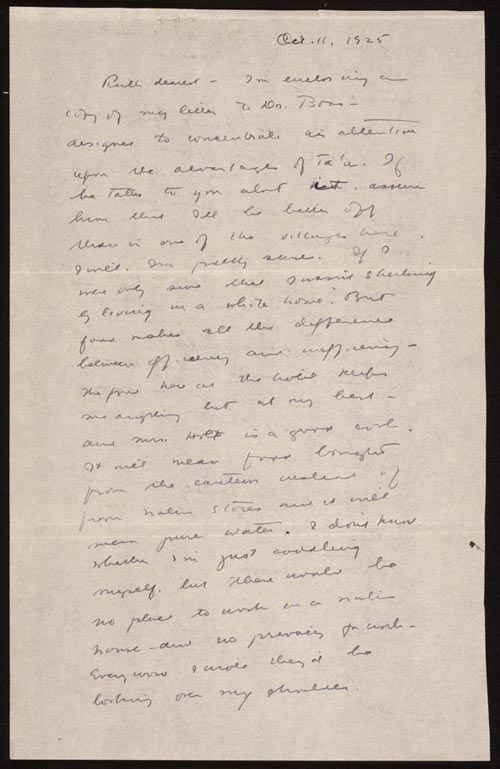 Oct. 11, 1925
Ruth dearest - I'm enclosing a
copy of my letter to Dr. Boas -
designed to concentrate his attention
upon the advantages of Ta'u. If
he talks to you about it, assure
him that I'll be better off
than in one of the villages here.
I will. I'm pretty sure. If I
were only sure that I wasn't shirking
by living in a white home. But
food makes all the difference
between efficiency and inefficiency -
the food here at the hotel keeps
me anything but at my best -
and Mrs. Holt is a good cook.
It will mean food bought
from the canteen instead of
from native stores and it will
mean pure water. I don't know
whether I'm just coddling
myself, but there would be
no place to work in a native
house - and no privacy for work -
Every word I wrote they'd be
looking over my shoulder.